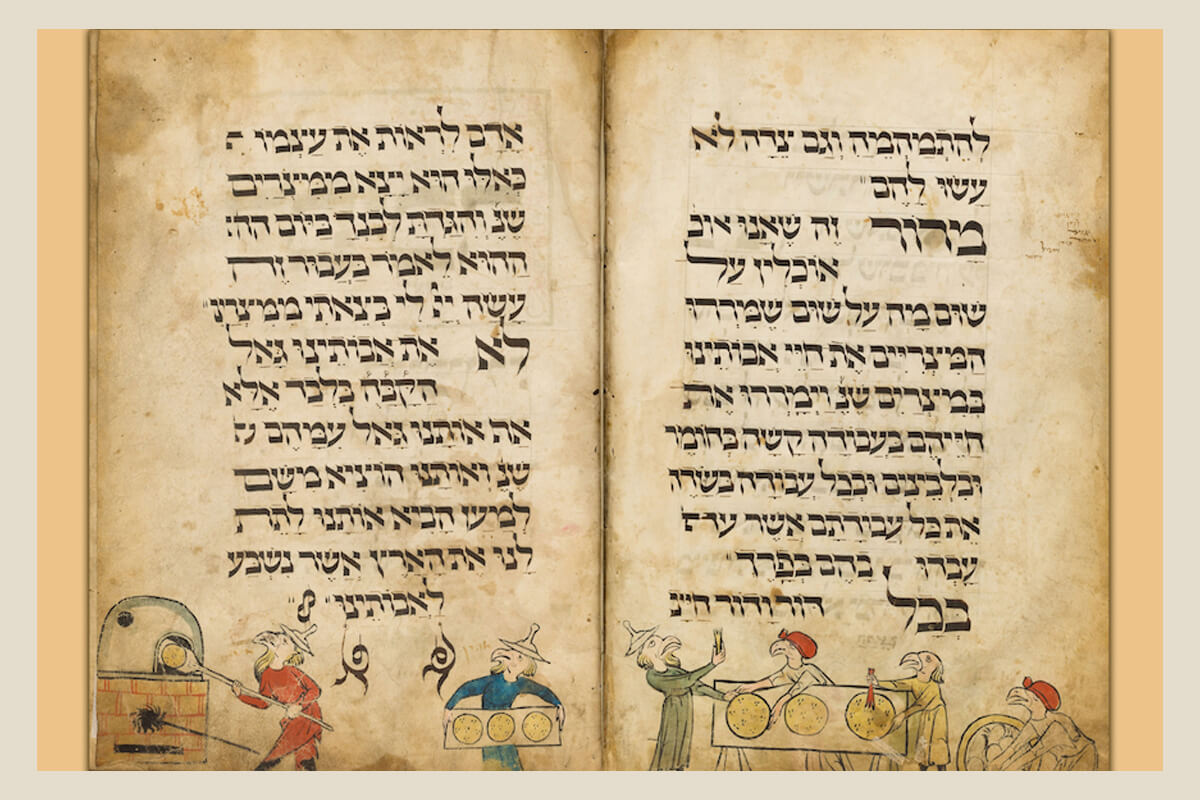 להתמהמה וגם צדה לא
עשו להם
מרור זה שאנו אוכ
אוכלין על
שום מה על שום שמיררו
המיצריים את חיי אבותינו
במיצרים שנ וימררו את
חייהם בעבודה קשה בחומר
ובלבינים ובכל עבודה בשדה
את כל עבודתם אשר
עבדו בהם בפרך
בכל דור ודור חייב
אדם לראות את עצמו
כאלו הוא יצא ממיצרים
שנ והגדת לבנך ביום הה
ההוא לאמר בעבור זה
עשה ייי לי בצאתי ממיצרים
לא את אבותינו גאל
הקבה בלבד אלא
את אותנו גאל עמהם
שנ ואותנו הוציא משם
למען הביא אותנו לתת
לנו את הארץ אשר נשבע
לאבותינו